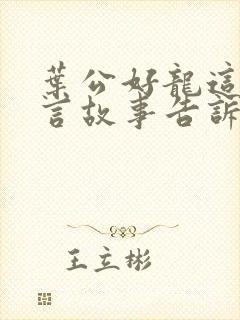 葉公好龍這
言故事告訴
王立彬